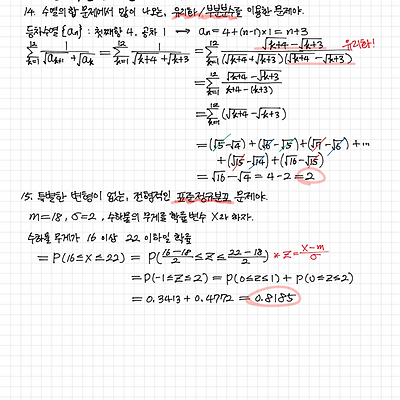 14. 수열의 합 문제에서 많이 나오는, 유리화/부분분수를 이용한 문제야.
등차수열 {an} : 첫째항 4, 공차 1 ⟺ an = 4+(n-1)×1 = n+3
∑(k=1→12) 1/(√a_{k+1} + √a_k) = ∑(k=1→12) 1/(√k+4 + √k+3) = ∑(k=1→12) (√k+4 - √k+3)/((√k+4 + √k+3)(√k+4 - √k+3)) 유리화!
= ∑(k=1→12) (√k+4 - √k+3)/(k+4-(k+3))
= ∑(k=1→12) (√k+4 - √k+3)
= (√5-√4) + (√6-√5) + (√7-√6) + …
+ (√15-√14) + (√16-√15)
= √16 - √4 = 4-2 = 2
15. 특별한 변형이 없는, 전형적인 표준정규분포 문제야.
m=18, σ=2, 수하물의 무게를 확률변수 X라 하자.
수하물 무게가 16 이상 22 이하일 확률
= P(16≤X≤22) = P((16-18)/2 ≤ Z ≤ (22-18)/2) * Z = (X-m)/σ
= P(-1≤Z≤2) = P(0≤Z≤1) + P(0≤Z≤2)
= 0.3413 + 0.4772 = 0.8185